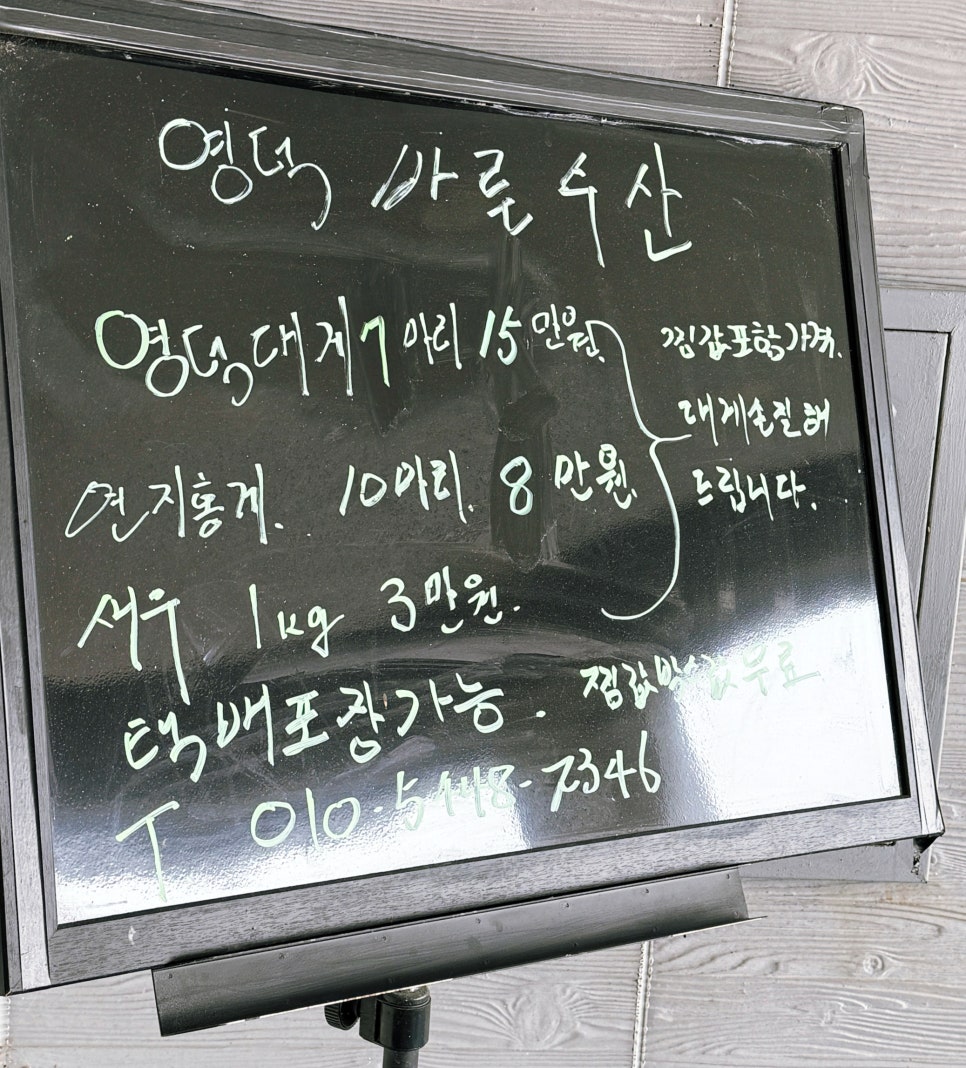 영덕 바로수산
영덕대게 7마리 15만원.
연지홍게. 10마리. 8만원.
새우 1kg 3만원.
찜값포함가격.
대게손질해
드립니다.
택배포장가능.
찜값박스값무료
T 010-5448-7346